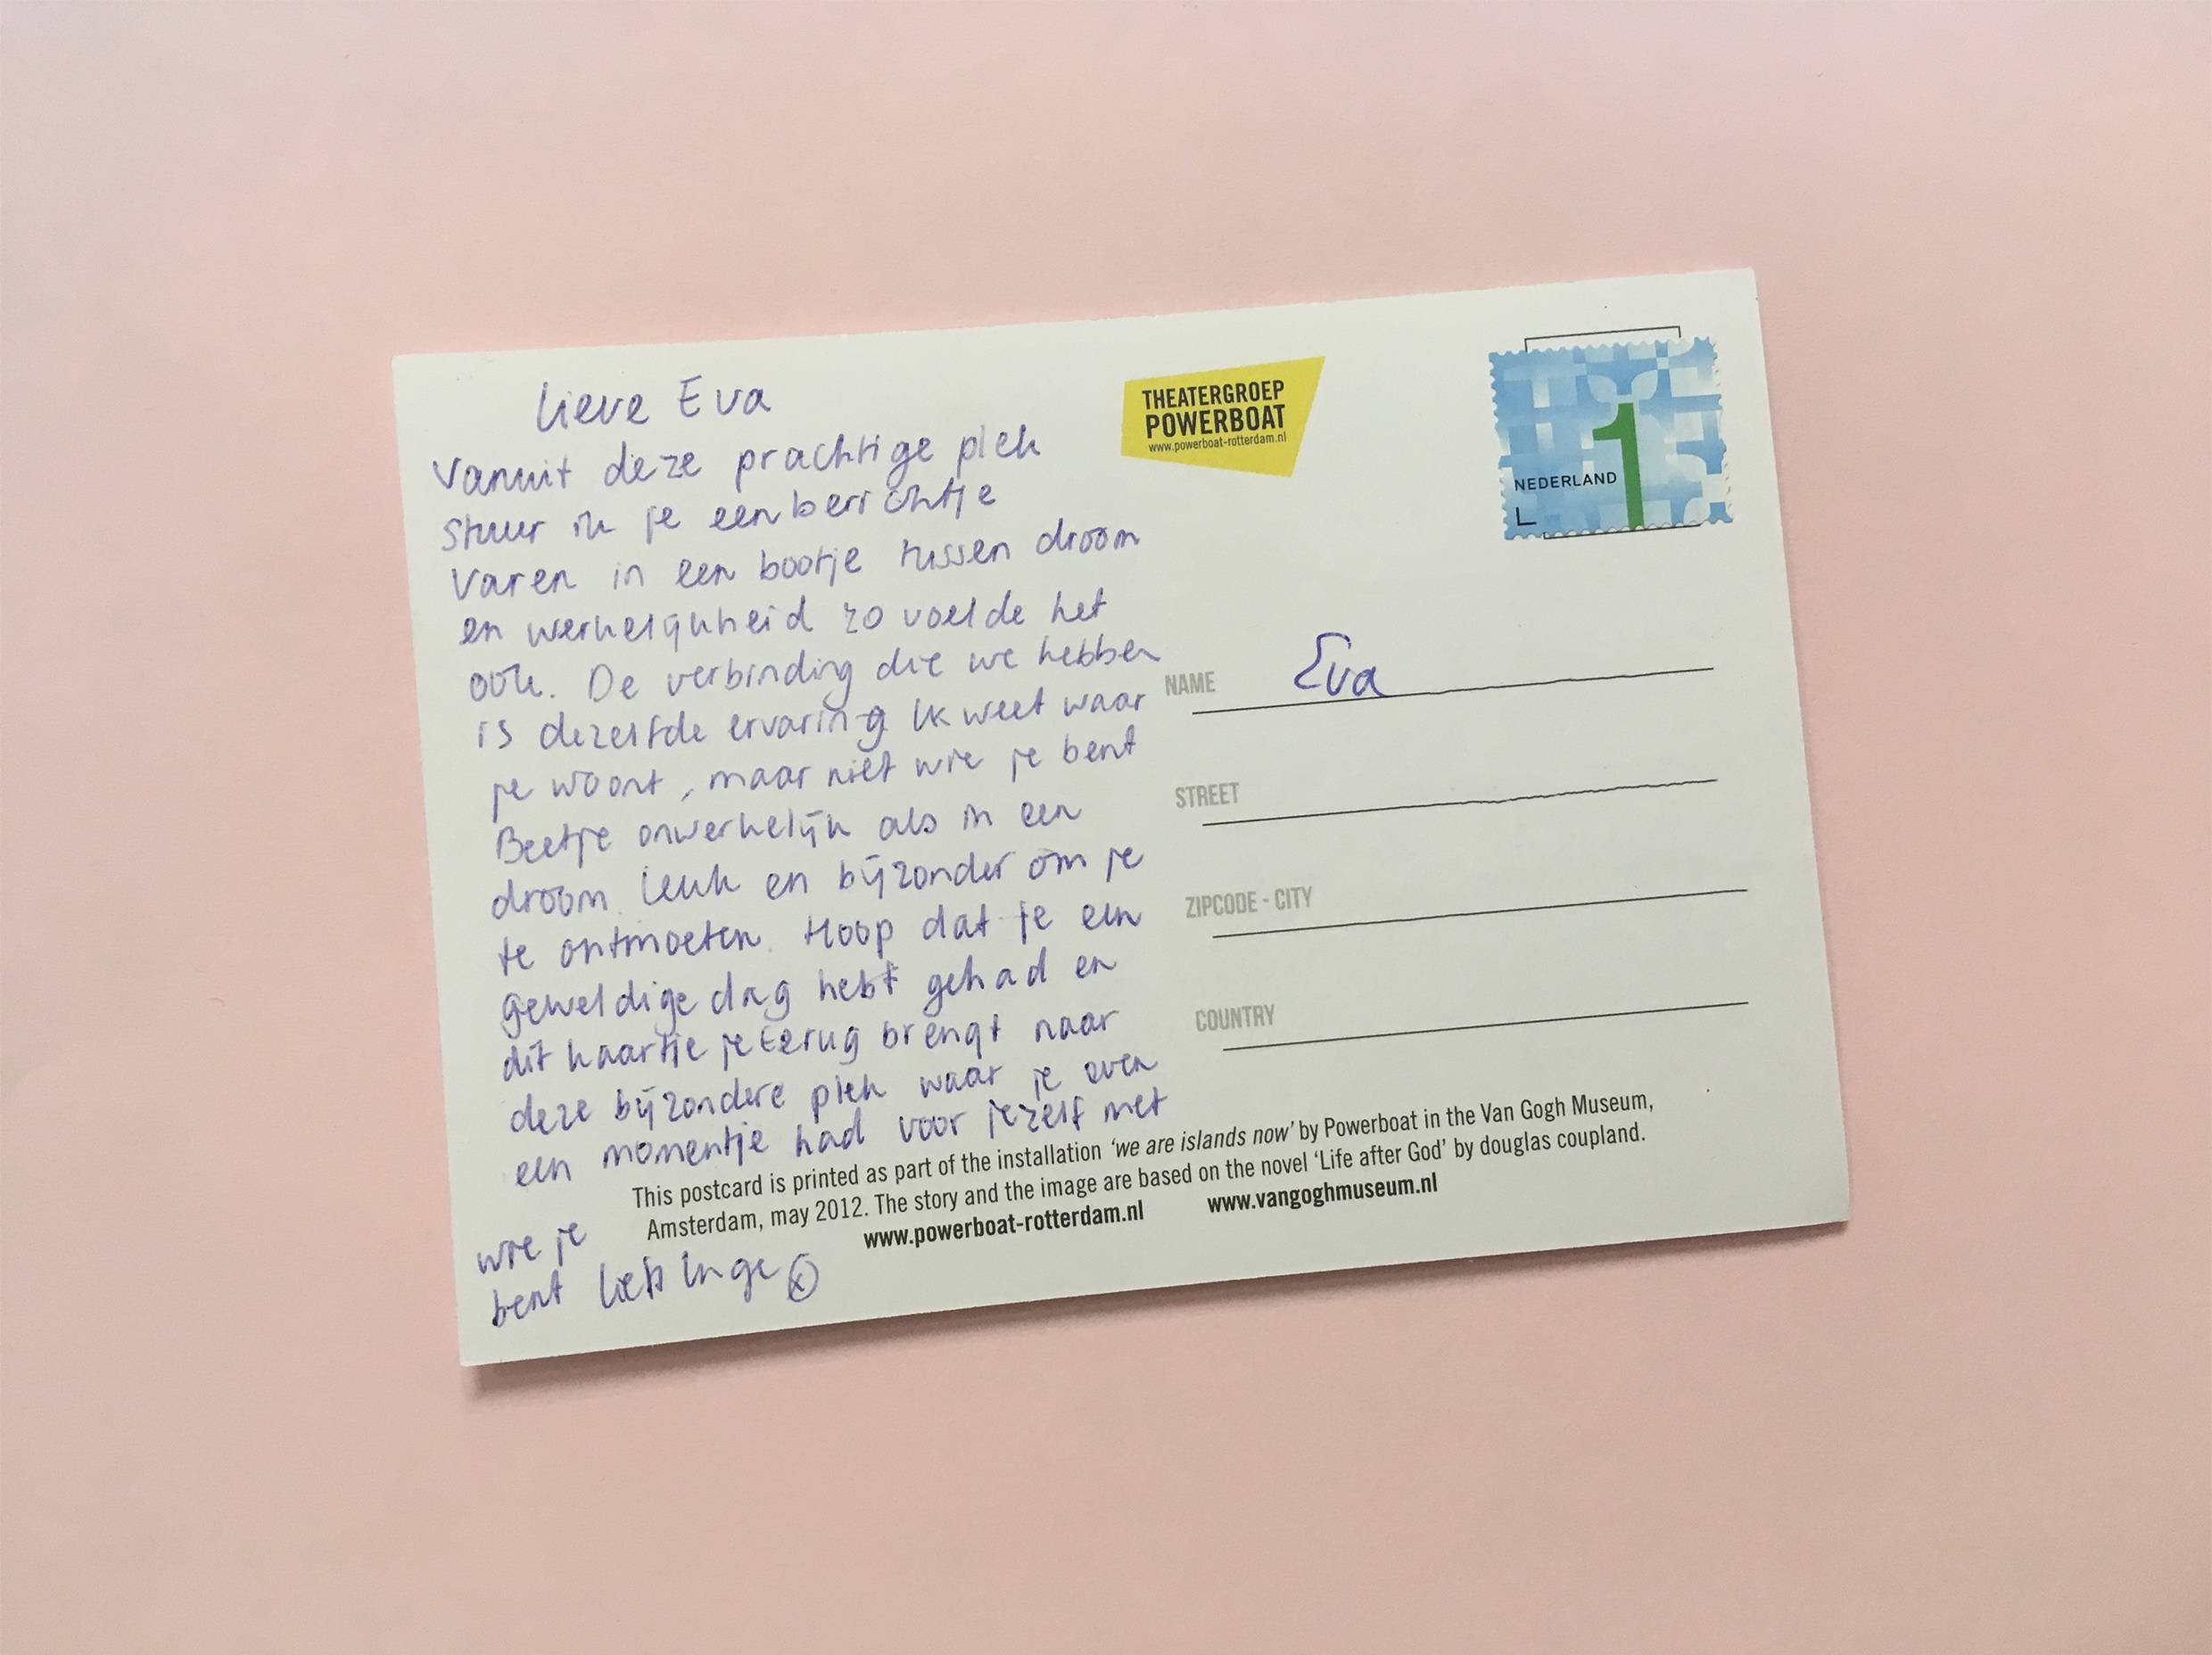 Lieve Eva
Vanuit deze prachtige plek
stuur ik je een berichtje
Varen in een bootje tussen droom
en werkelijkheid zo voelde het
ook. De verbinding die we hebben
is dezelfde ervaring Ik weet waar
je woont, maar niet wie je bent
Beetje onwerkelijk als in een
droom. Leuk en bijzonder om je
te ontmoeten. Hoop dat je een
geweldige dag hebt gehad en
dit kaartje je terug brengt naar
deze bijzondere plek waar je even
een momentje had voor jezelf met
wie je
bent liefs Inge x
THEATERGROEP
POWERBOAT
www.powerboat-rotterdam.nl
NEDERLAND
1
NAME Eva
STREET
ZIPCODE - CITY
COUNTRY
This postcard is printed as part of the installation 'we are islands now' by Powerboat in the Van Gogh Museum,
Amsterdam, may 2012. The story and the image are based on the novel 'Life after God' by douglas coupland.
www.powerboat-rotterdam.nl www.vangoghmuseum.nl